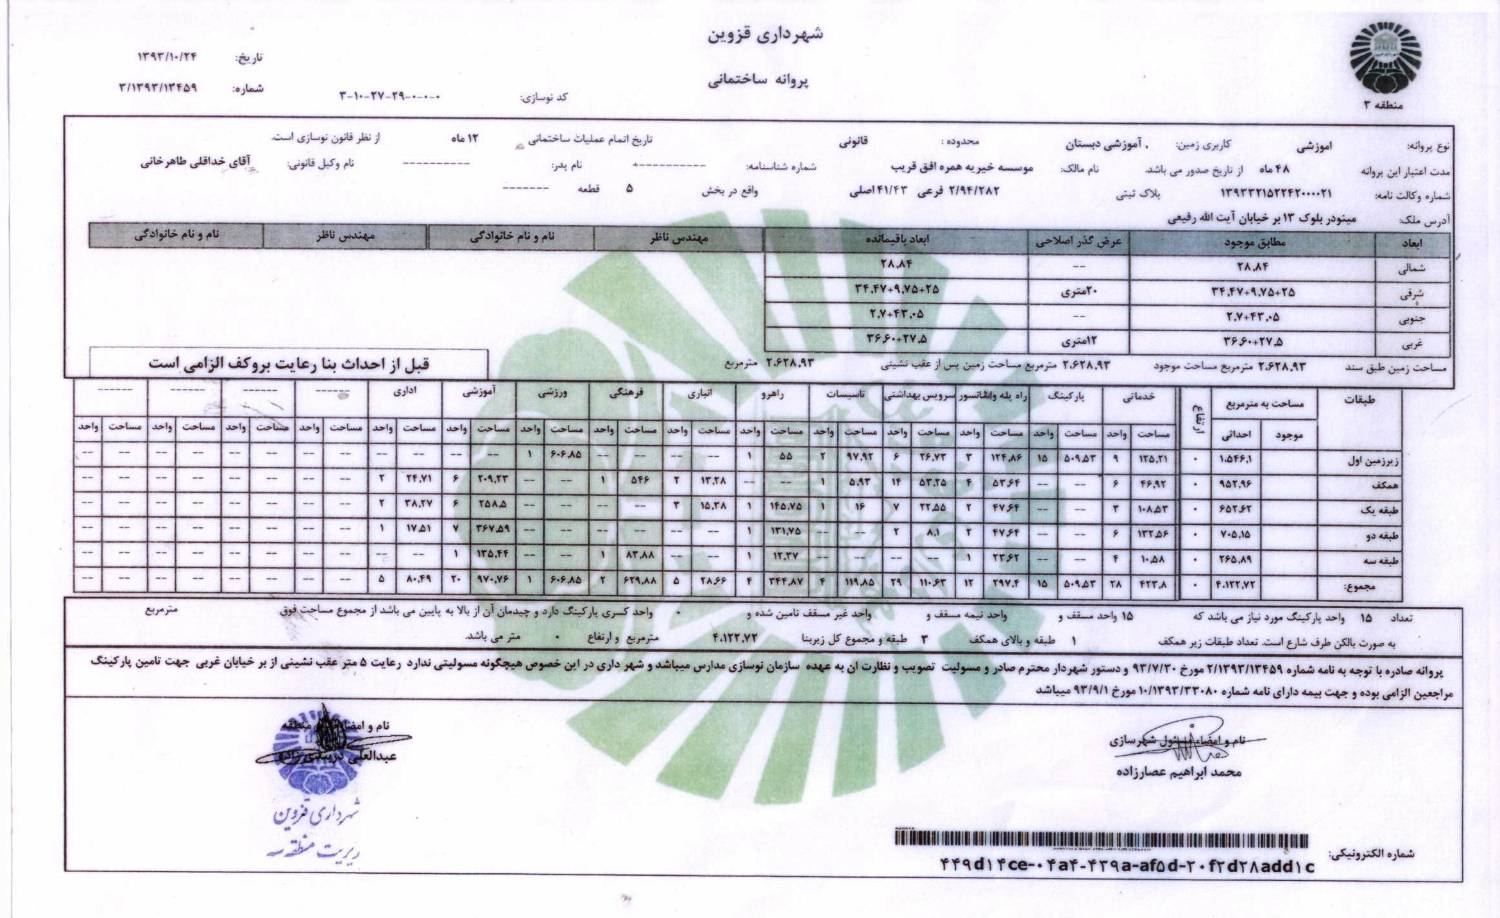 شهرداری قزوین
پروانه ساختمانی
منطقه ۳
تاریخ: ۱۳۹۳/۱۰/۲۴
شماره: ۳/۱۳۹۳/۱۳۴۵۹
کد نوسازی: ۳-۱۰-۲۷-۲۹-۰-۰-۰
نوع پروانه: اموزشی کاربری زمین: آموزشی دبستان محدوده: قانونی تاریخ اتمام عملیات ساختمانی ۱۲ ماه از نظر قانون نوسازی است.
مدت اعتبار این پروانه ۴۸ ماه از تاریخ صدور می باشد. نام مالک: موسسه خیریه همره افق قریب شماره شناسنامه: -----------۰ نام پدر: ---------- نام وکیل قانونی: آقای خداقلی طاهرخانی
شماره وکالت نامه: ۱۳۹۳۳۲۱۵۲۲۴۲۰۰۰۰۲۱ پلاک ثبتی ۲/۹۴/۲۸۲ فرعی ۴۱/۴۳ اصلی واقع در بخش ۵ قطعه -------
آدرس ملک: مینودر بلوک ۱۳ بر خیابان آیت الله رفیعی
ابعاد مطابق موجود عرض گذر اصلاحی ابعاد باقیمانده مهندس ناظر نام و نام خانوادگی مهندس ناظر نام و نام خانوادگی
شمالی ۲۸.۸۴ -- ۲۸.۸۴
شرقی ۳۴.۴۷+۹.۷۵+۲۵ ۲۰متری ۳۴.۴۷+۹.۷۵+۲۵
جنوبی ۲.۷+۴۳.۰۵ -- ۲.۷+۴۳.۰۵
غربی ۳۶.۶۰+۲۷.۵ ۱۲متری ۳۶.۶۰+۲۷.۵
مساحت زمین طبق سند ۲.۶۲۸.۹۳ مترمربع مساحت موجود ۲.۶۲۸.۹۳ مترمربع مساحت زمین پس از عقب نشینی ۲.۶۲۸.۹۳ مترمربع
قبل از احداث بنا رعایت بروکف الزامی است
طبقات مساحت به مترمربع ارتفاع خدماتی پارکینگ راه پله وآسانسور سرویس بهداشتی تاسیسات راهرو انباری فرهنگی ورزشی آموزشی اداری ------ ------ ------ ------
موجود احداثی مساحت واحد مساحت واحد مساحت واحد مساحت واحد مساحت واحد مساحت واحد مساحت واحد مساحت واحد مساحت واحد مساحت واحد مساحت واحد مساحت واحد مساحت واحد مساحت واحد مساحت واحد
زیرزمین اول ۱.۵۴۶.۱ ۰ ۱۲۵.۲۱ ۹ ۵۰۹.۵۳ ۱۵ ۱۲۴.۸۶ ۳ ۲۶.۷۳ ۶ ۹۷.۹۲ ۲ ۵۵ ۱ -- -- -- -- ۶۰۶.۸۵ ۱ -- -- -- -- -- -- -- -- -- -- -- --
همکف ۹۵۲.۹۶ ۰ ۴۶.۹۲ ۶ -- -- ۵۳.۶۴ ۴ ۵۳.۲۵ ۱۴ ۵.۹۳ ۱ -- -- ۱۳.۲۸ ۲ ۵۴۶ ۱ -- -- ۲۰۹.۲۳ ۶ ۲۴.۷۱ ۲ -- -- -- -- -- -- -- --
طبقه یک ۶۵۲.۶۲ ۰ ۱۰۸.۵۳ ۳ -- -- ۴۷.۶۴ ۲ ۲۲.۵۵ ۷ ۱۶ ۱ ۱۴۵.۷۵ ۱ ۱۵.۳۸ ۳ -- -- -- -- ۲۵۸.۵ ۶ ۳۸.۲۷ ۲ -- -- -- -- -- -- -- --
طبقه دو ۷۰۵.۱۵ ۰ ۱۳۲.۵۶ ۶ -- -- ۴۷.۶۴ ۲ ۸.۱ ۲ -- -- ۱۳۱.۷۵ ۱ -- -- -- -- -- -- ۳۶۷.۵۹ ۷ ۱۷.۵۱ ۱ -- -- -- -- -- -- -- --
طبقه سه ۲۶۵.۸۹ ۰ ۱۰.۵۸ ۴ -- -- ۲۳.۶۲ ۱ -- -- -- -- ۱۲.۳۷ ۱ -- -- ۸۳.۸۸ ۱ -- -- ۱۳۵.۴۴ ۱ -- -- -- -- -- -- -- -- -- --
مجموع: ۴.۱۲۲.۷۲ ۰ ۴۲۳.۸ ۲۸ ۵۰۹.۵۳ ۱۵ ۲۹۷.۴ ۱۲ ۱۱۰.۶۳ ۲۹ ۱۱۹.۸۵ ۴ ۳۴۴.۸۷ ۴ ۲۸.۶۶ ۵ ۶۲۹.۸۸ ۲ ۶۰۶.۸۵ ۱ ۹۷۰.۷۶ ۲۰ ۸۰.۴۹ ۵ -- -- -- -- -- -- -- --
تعداد ۱۵ واحد پارکینگ مورد نیاز می باشد که ۱۵ واحد مسقف و واحد نیمه مسقف و واحد غیر مسقف تامین شده و ۰ واحد کسری پارکینگ دارد و چیدمان آن از بالا به پایین می باشد از مجموع مساحت فوق مترمربع
به صورت بالکن طرف شارع است. تعداد طبقات زیر همکف ۱ طبقه و بالای همکف ۳ طبقه و مجموع کل زیربنا ۴.۱۲۲.۷۲ مترمربع و ارتفاع ۰ متر می باشد.
پروانه صادره با توجه به نامه شماره ۲/۱۳۹۳/۱۳۴۵۹ مورخ ۹۳/۷/۳۰ و دستور شهردار محترم صادر و مسولیت تصویب و نظارت ان به عهده سازمان نوسازی مدارس میباشد و شهر داری در این خصوص هیچگونه مسولیتی ندارد رعایت ۵ متر عقب نشینی از بر خیابان غربی جهت تامین پارکینگ
مراجعین الزامی بوده و جهت بیمه دارای نامه شماره ۱۰/۱۳۹۳/۳۳۰۸۰ مورخ ۹۳/۹/۱ میباشد
نام و امضاء مسئول شهرسازی
محمد ابراهیم عصارزاده
نام و امضاء منطقه
عبدالعلی
شهرداری قزوین
منطقه سه
شماره الکترونیکی: ۴۴۹d۱۴ce-۰۴a۴-۴۳۹a-af۵d-۲۰f۲d۲۸add۱c